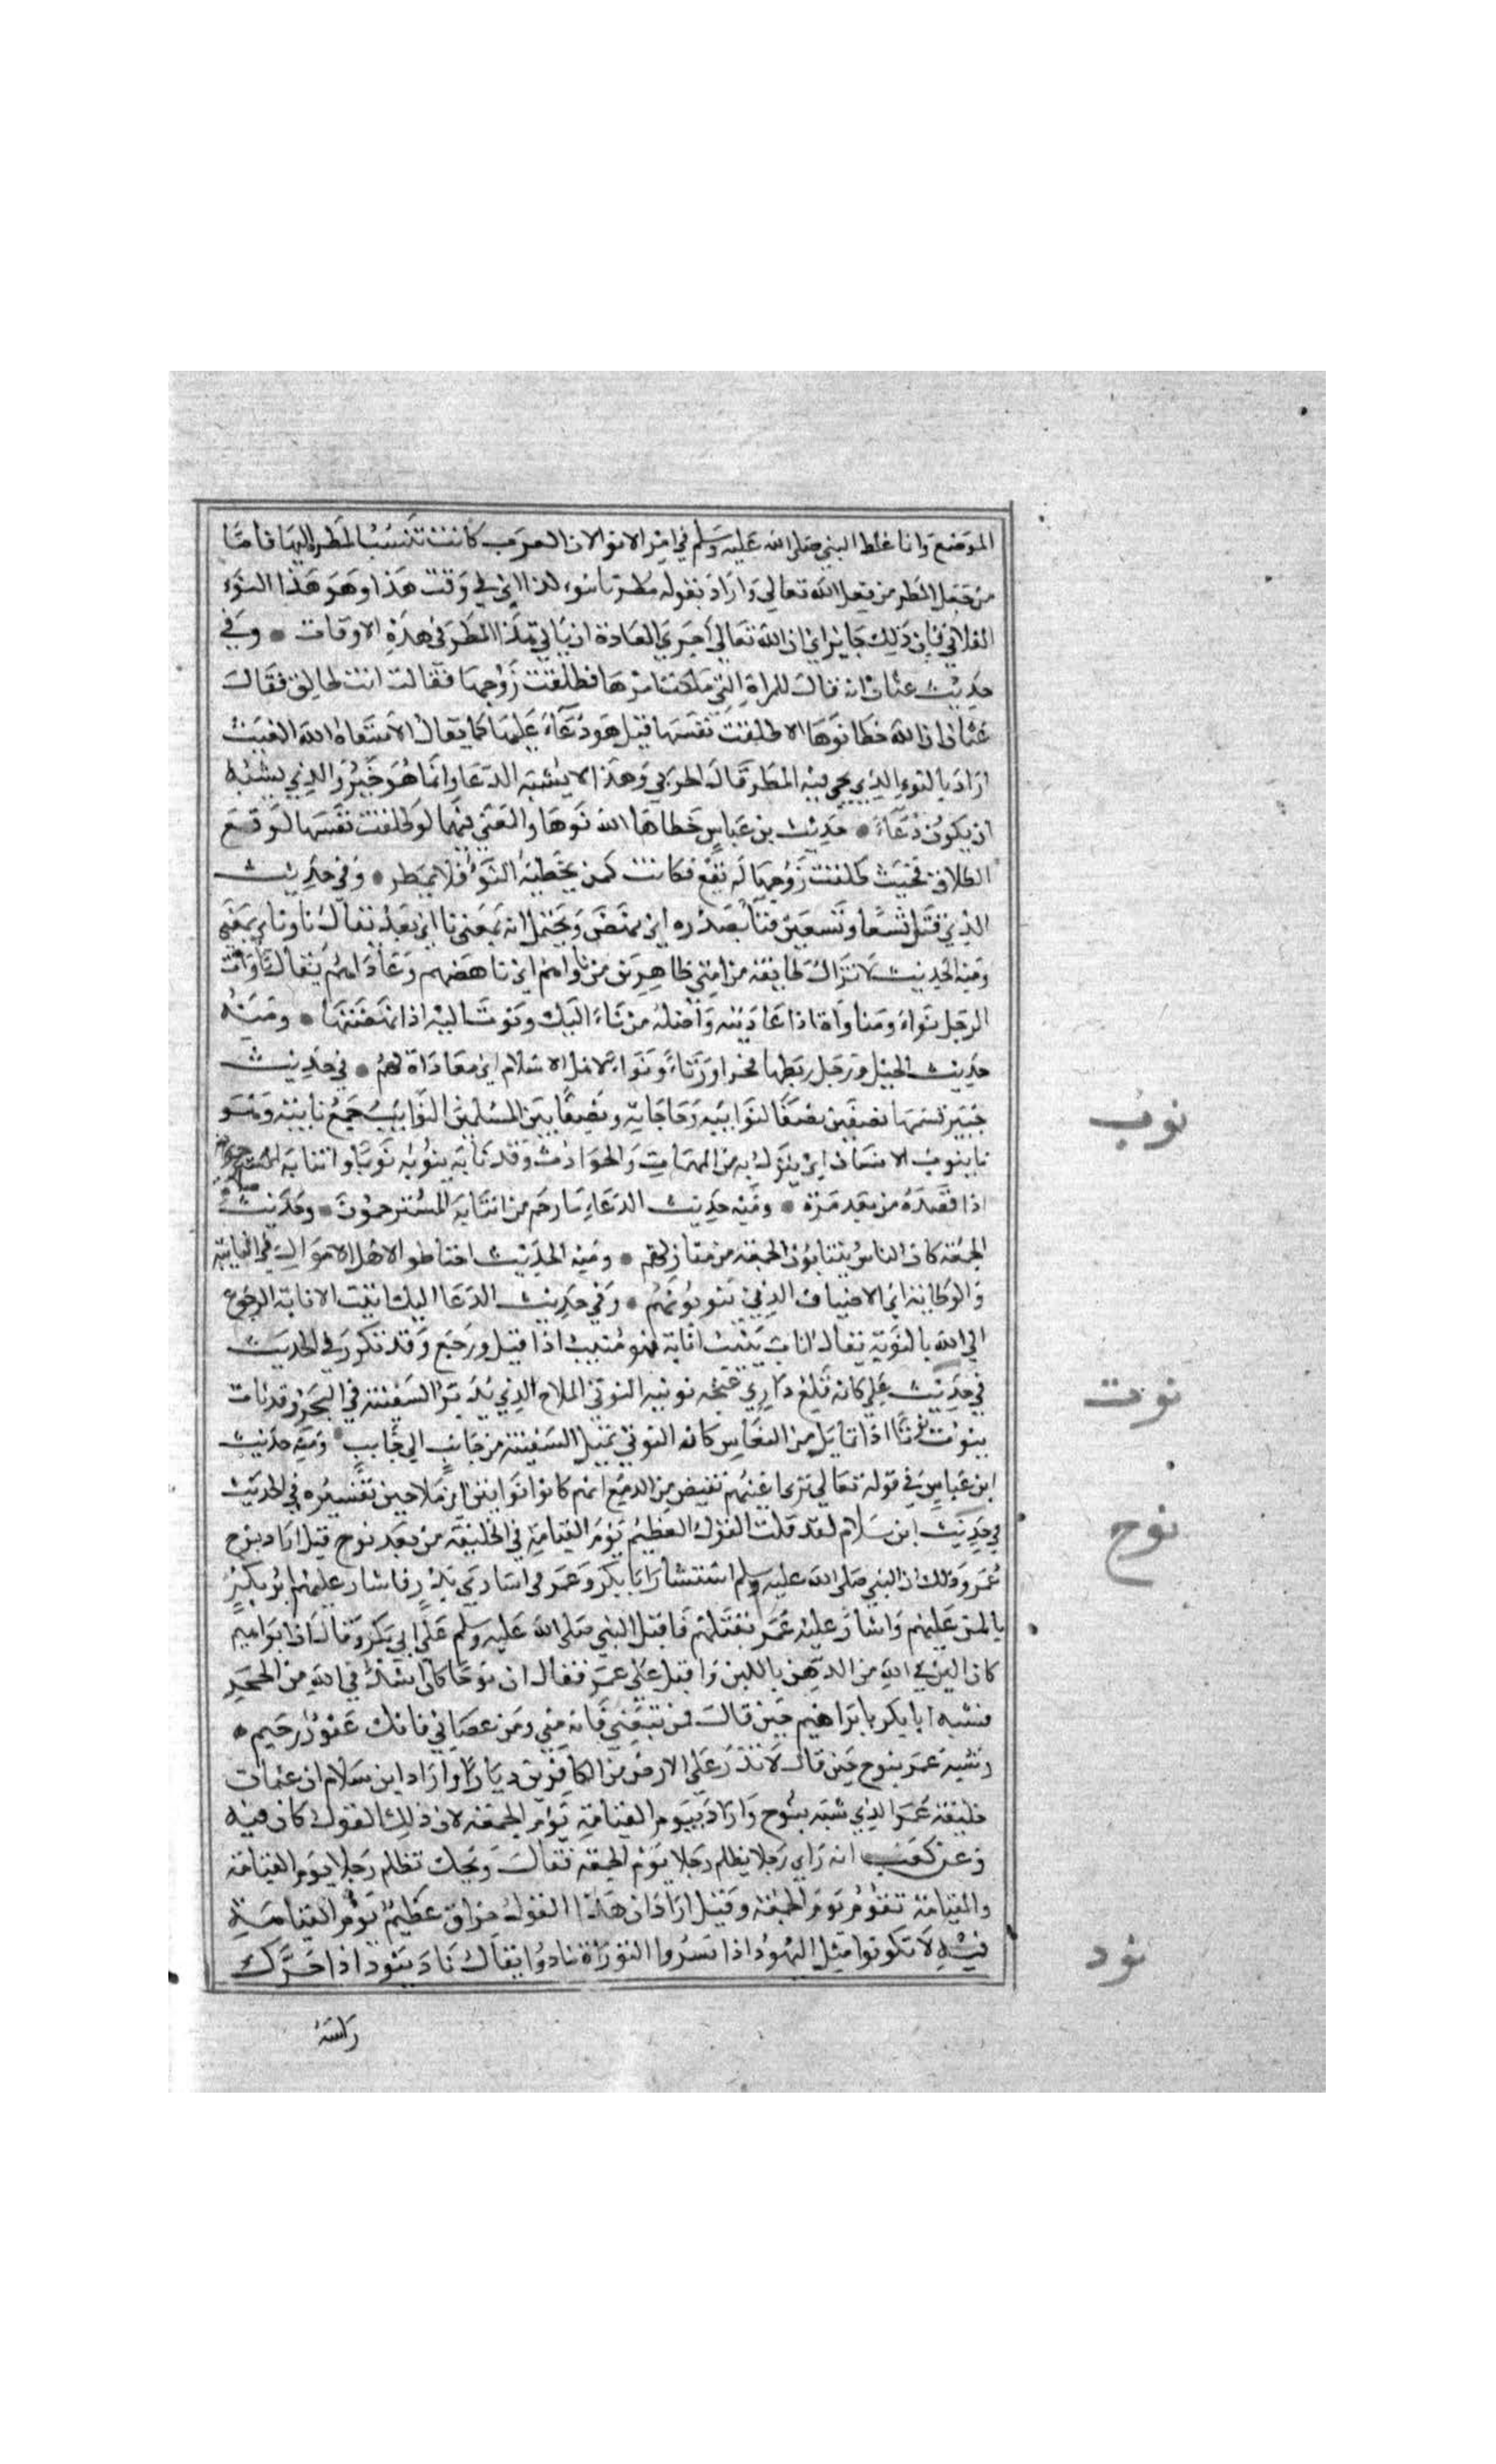 الموضع وانما غلظ النبي صلى الله عليه وسلم في امر الانوا لان العرب كانت تنسب المطر اليها فاما
من جعل المطر من فعل الله تعالى واراد بقوله مطرنا بنوء كذا اي في وقت هذا وهو هذا النوء
الفلاني فان ذلك جايز اي ان الله تعالى اجرى العادة ان ياتي المطر في هذه الاوقات • وفي
حديث عثمان انه قال للمراة التي ملكت امرها فطلقت زوجها فقالت انت طالق فقال
عثمان ان الله خطا نوها الا طلقت نفسها قيل هو دعاء عليها كما يقال لا سقاه الله الغيث
اراد بالنوء الذي يجي فيه المطر قال الحربي وهذا لا يشبه الدعا وانما هو خبر والذي يشبه
ان يكون دعاء • حديث بن عباس خطا الله نوها والمعنى فيهما لو طلقت نفسها لوقع
الطلاق فحيث طلقت زوجها لم يقع فكانت كمن يخطيه النوء فلا يمطر • وفي حديث
الذي قتل تسعا وتسعين فناء بصدره اي نهض ويحتمل انه بمعنى نأى اي بعد يقال ناء ونأى بمعنى
ومنه الحديث لا تزال طايفة من امتي ظاهرين من ناواهم اي ناهضهم وعاداهم يقال ناوات
الرجل نواء ومناواة اذا عاديته واصله من ناء اليك ونوت اليه اذا نهضتها • ومنه
حديث الخيل ورجل ربطها فخرا ورياء ونواء لاهل الاسلام اي معاداة لهم • في حديث
خيبر قسمها نصفين نصفا لنوايبه وحاجاته ونصفا بين المسلمين النوايب جمع نايبة وهو
ما ينوب الانسان اي ينزل به من المهمات والحوادث وقد نابه ينوبه نوبا وانتابه
اذا قصده مرة بعد مرة • ومنه حديث الدعاء يا ارحم من انتابه المسترحمون • وحديث
الجمعة كان الناس ينتابون الجمعة من منازلهم • ومنه الحديث احتاطوا لاهل الاموال في النايبة
والواطية اي الاضياف الذين ينوبونهم • وفي حديث الدعا اليك انبت الانابة الرجوع
الى الله بالتوبة يقال اناب ينيب انابة فهو منيب اذا اقبل ورجع وقد تكرر في الحديث
في حديث علي كانه قلع داري عنجه نوتيه النوتي الملاح الذي يدبر السفينة في البحر وقد نات
ينوت نوتا اذا تمايل من النعاس كان النوتي يميل السفينة من جانب الى جانب • ومنه حديث
ابن عباس في قوله تعالى ترى اعينهم تفيض من الدمع انهم كانوا نوايتن اي ملاحين تفسيره في الحديث
في حديث ابن سلام لقد قلت القول العظيم يوم القيامة في الخليفة من بعد نوح قيل اراد بنوح
عمر وذلك ان النبي صلى الله عليه وسلم استشار ابا بكر وعمر في اسارى بدر فاشار عليهم ابو بكر
بالمن عليهم واشار عليه عمر بقتلهم فاقبل النبي صلى الله عليه وسلم على ابي بكر وقال ان ابراهيم
كان الين في الله من الدهن باللبن واقبل على عمر فقال ان نوحا كان اشد في الله من الحجر
فشبه ابا بكر بابراهيم حين قال فمن تبعني فانه مني ومن عصاني فانك غفور رحيم ه
وشبه عمر بنوح حين قال لا تذر على الارض من الكافرين ديارا واراد ابن سلام ان عثمان
خليفة عمر الذي شبه بنوح واراد بيوم القيامة يوم الجمعة لان ذلك القول كان فيه
وعن كعب انه راى رجلا يظلم رجلا يوم الجمعة فقال ويحك تظلم رجلا يوم القيامة
والقيامة تقوم يوم الجمعة وقيل اراد ان هذا القول جزاوه عظيم يوم القيامة
فيه لا تكونوا مثل اليهود اذا نشروا التوراة نادوا يقال ناد ينود اذا حرك
راسه
نوب
نوت
نوح
نود